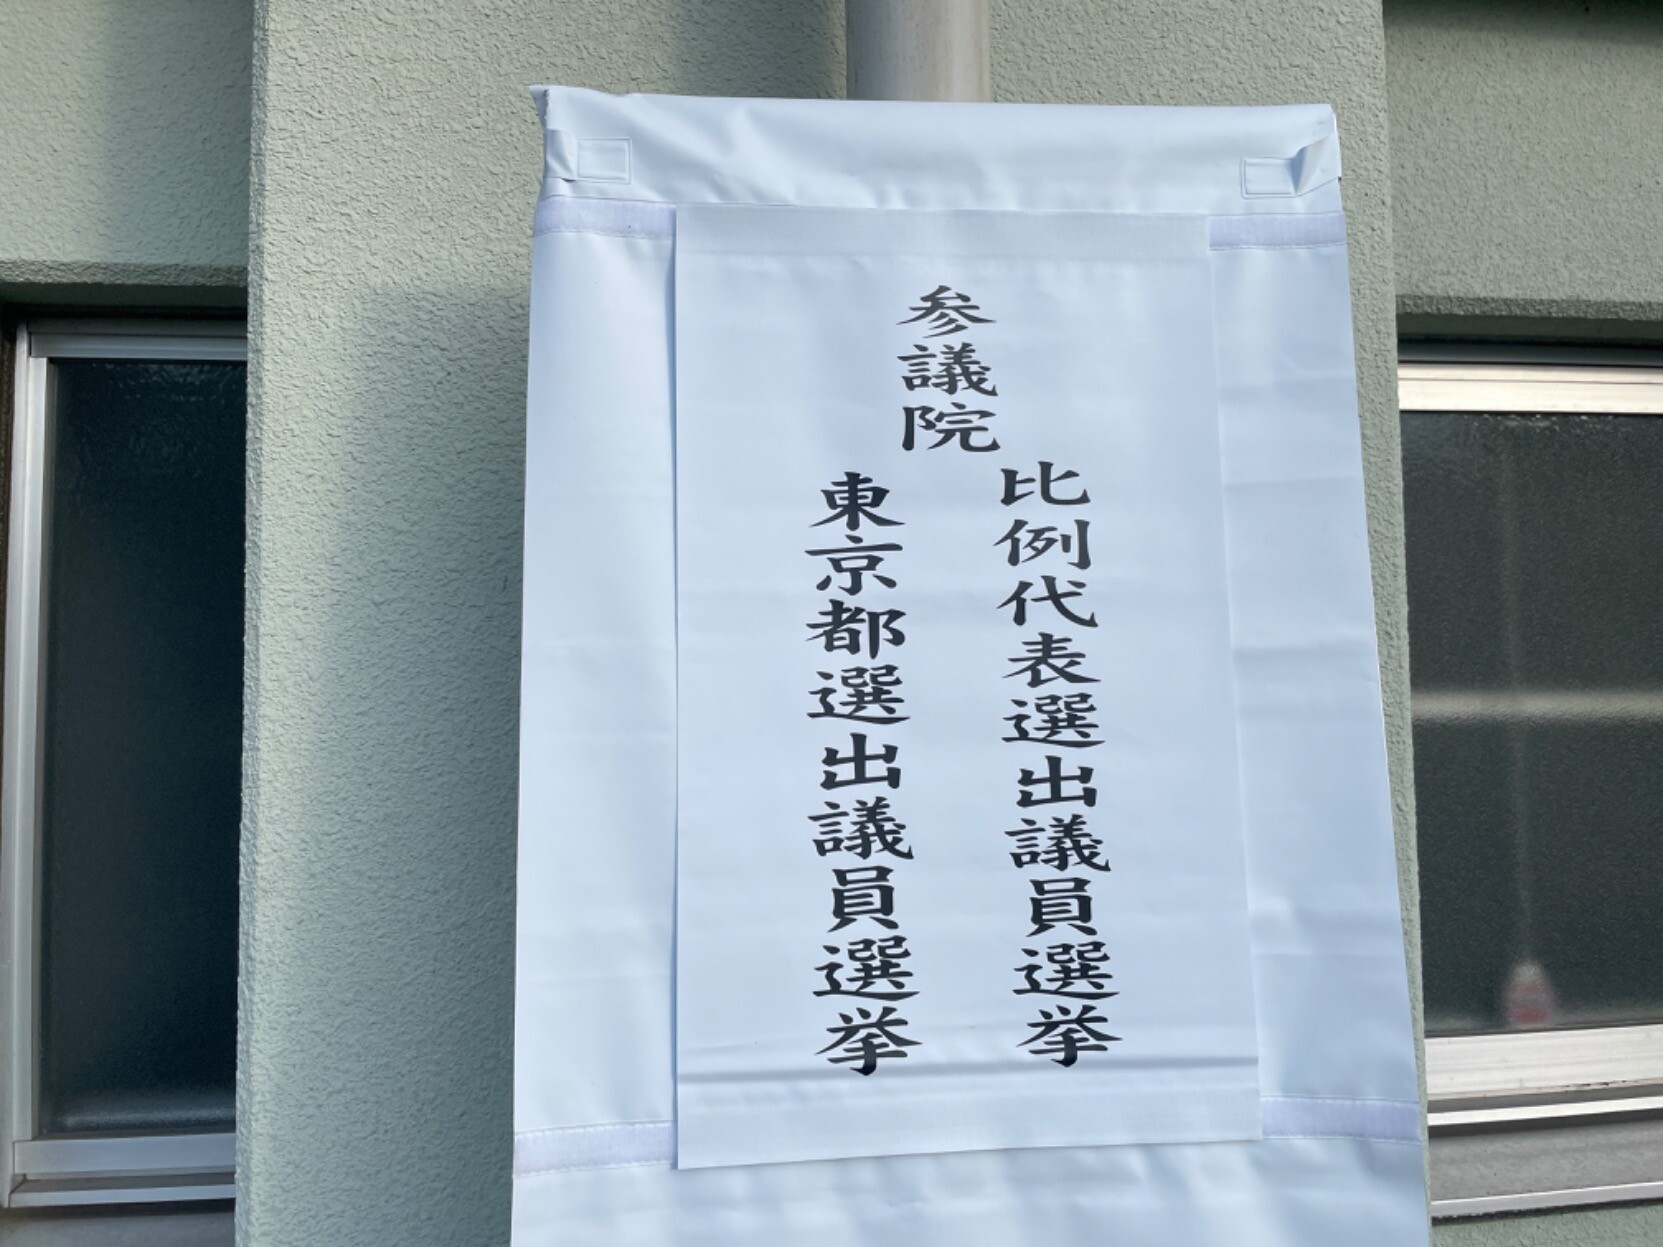 参議院
比例代表選出議員選挙
東京都選出議員選挙